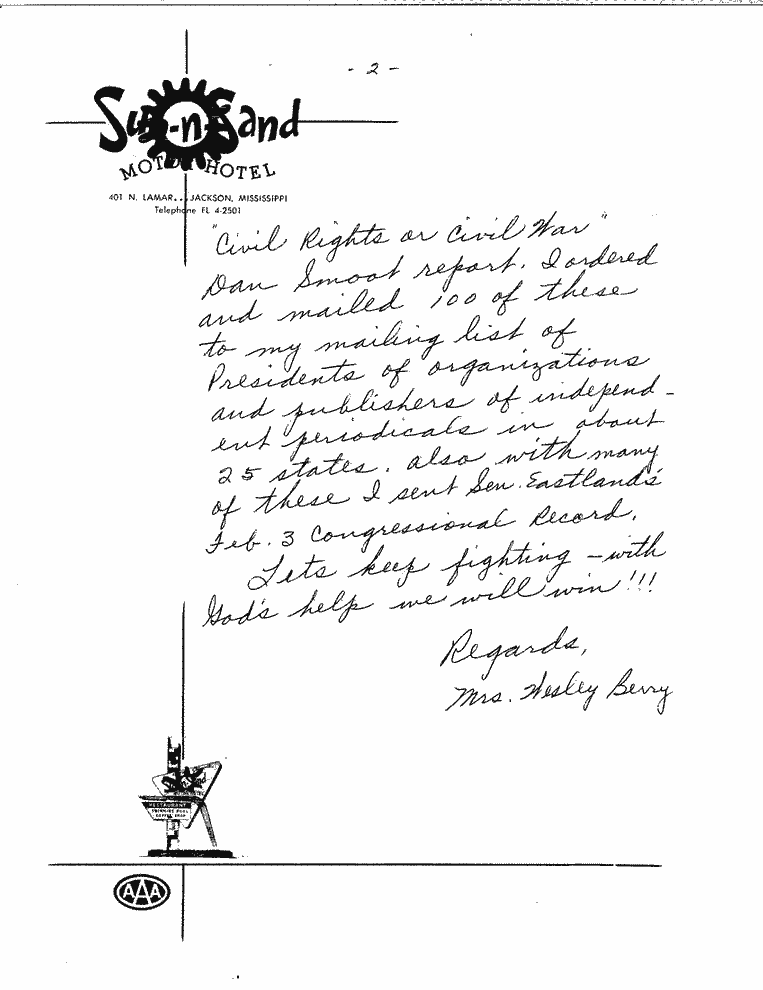 - 2 -
Sun-n-Sand
MOTOR HOTEL
401 N. LAMAR...JACKSON, MISSISSIPPI
Telephone FL 4-2501
"Civil Rights or Civil War"
Dan Smoot report. I ordered
and mailed 100 of these
to my mailing list of
Presidents of organizations
and publishers of independ-
ent periodicals in about
25 states. also with many
of these I sent Sen. Eastland's
Feb. 3 Congressional Record.
Lets keep fighting - with
God's help we will win!!!
Regards,
Mrs. Wesley Berry
Sun-n-Sand
RESTAURANT
SWIMMING POOL
COFFEE SHOP
AAA